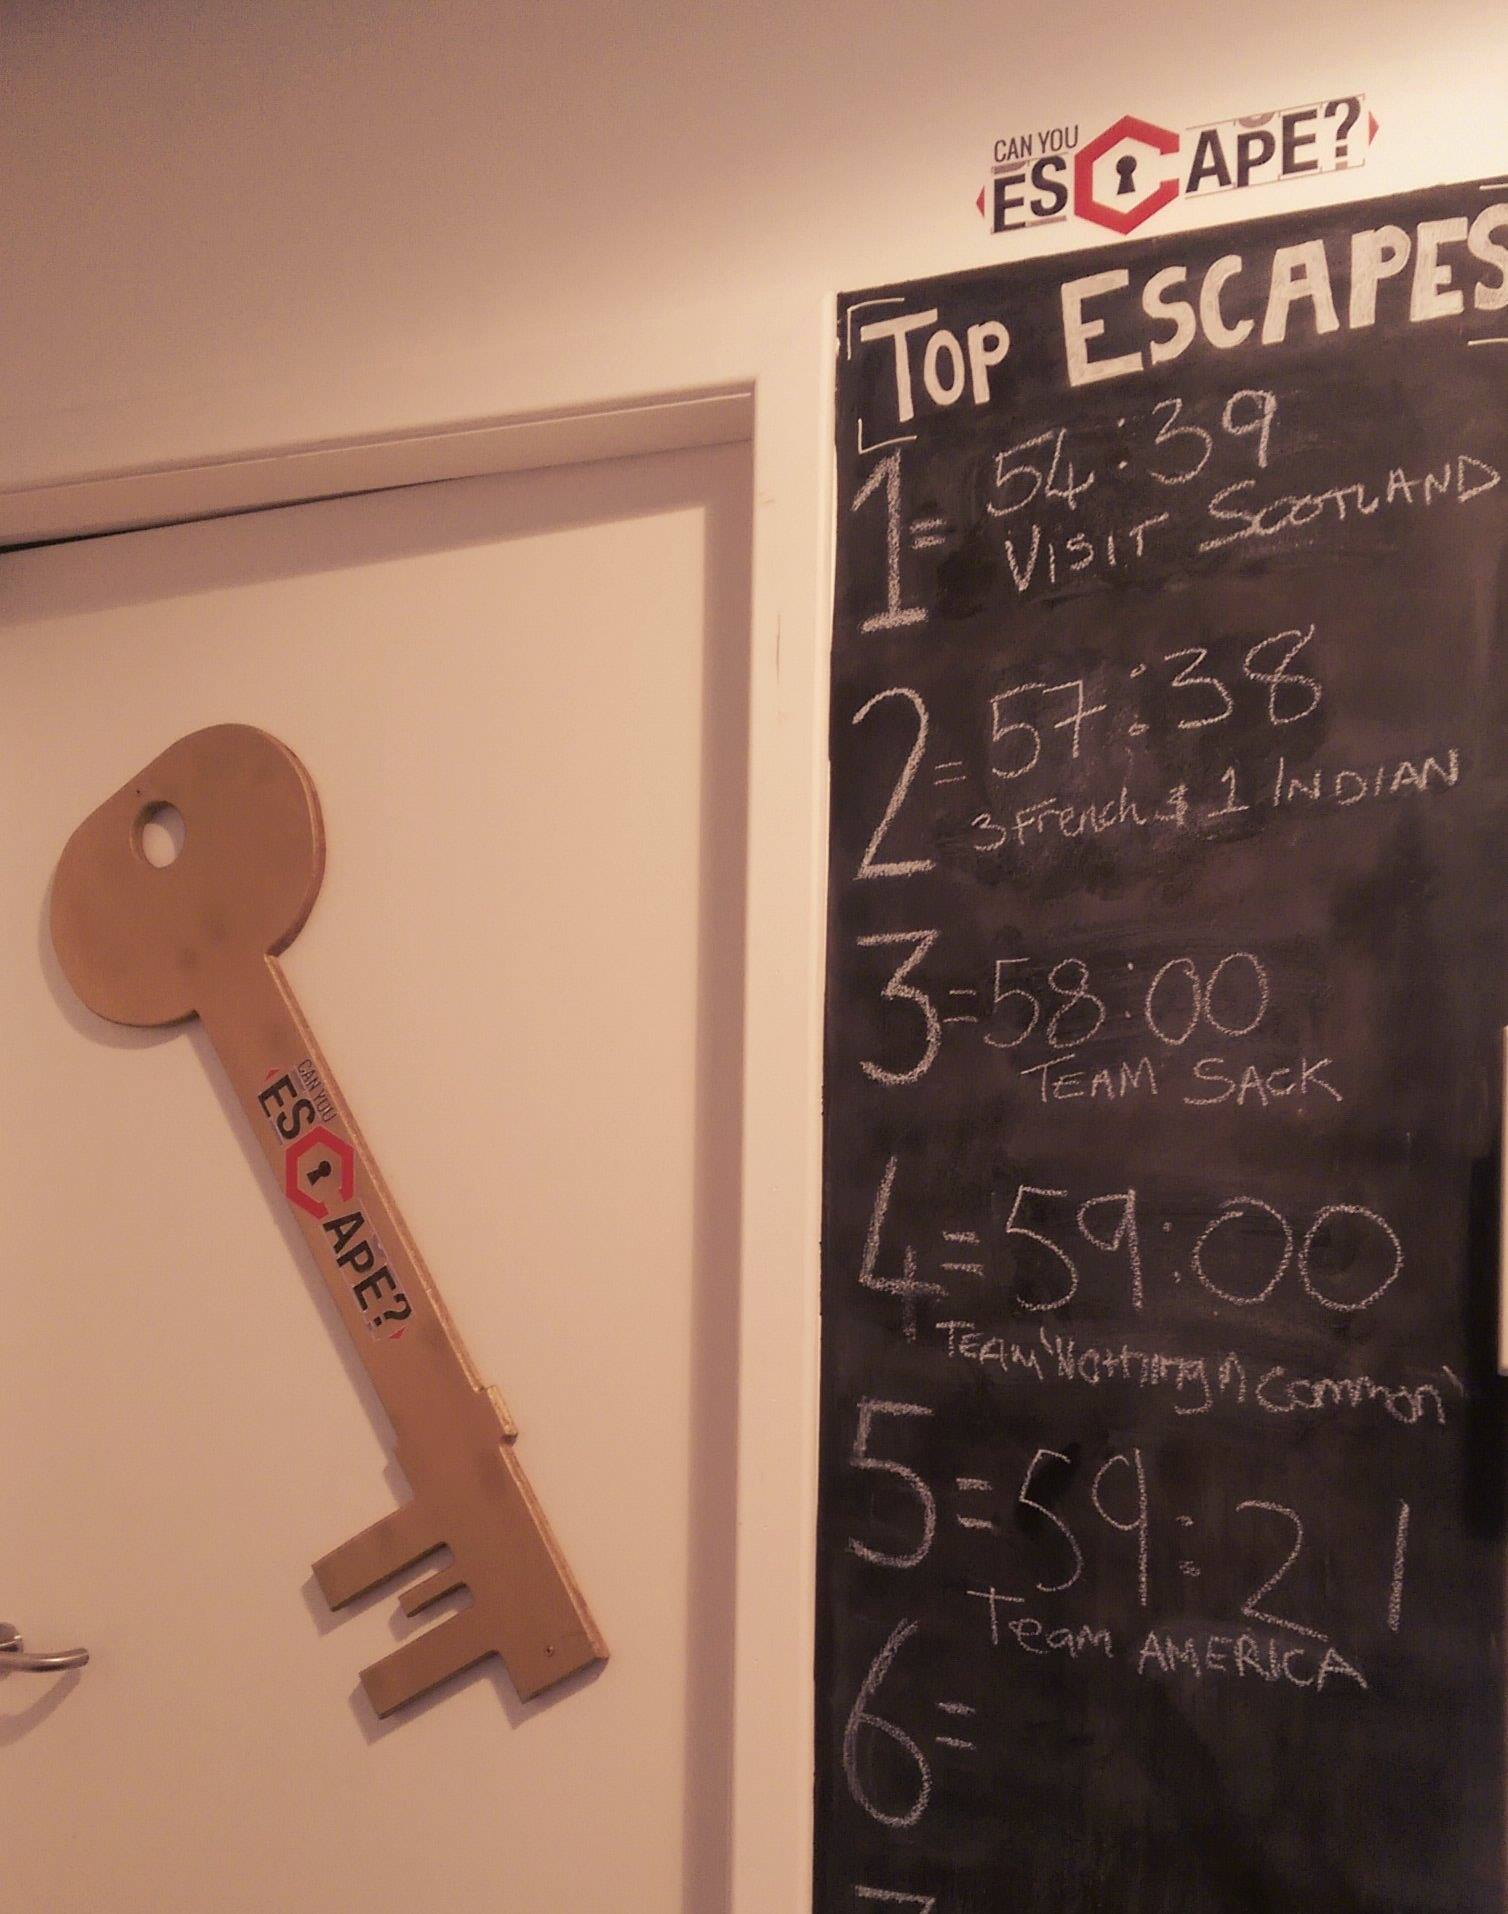 CAN YOU
ESCAPE?
TOP ESCAPES
1= 54:39
VISIT SCOTLAND
2= 57:38
3 French & 1 INDIAN
3=58:00
TEAM SACK
4=59:00
TEAM 'Nothing n Common'
5=59:21
Team AMERICA
6=
CAN YOU
ESCAPE?